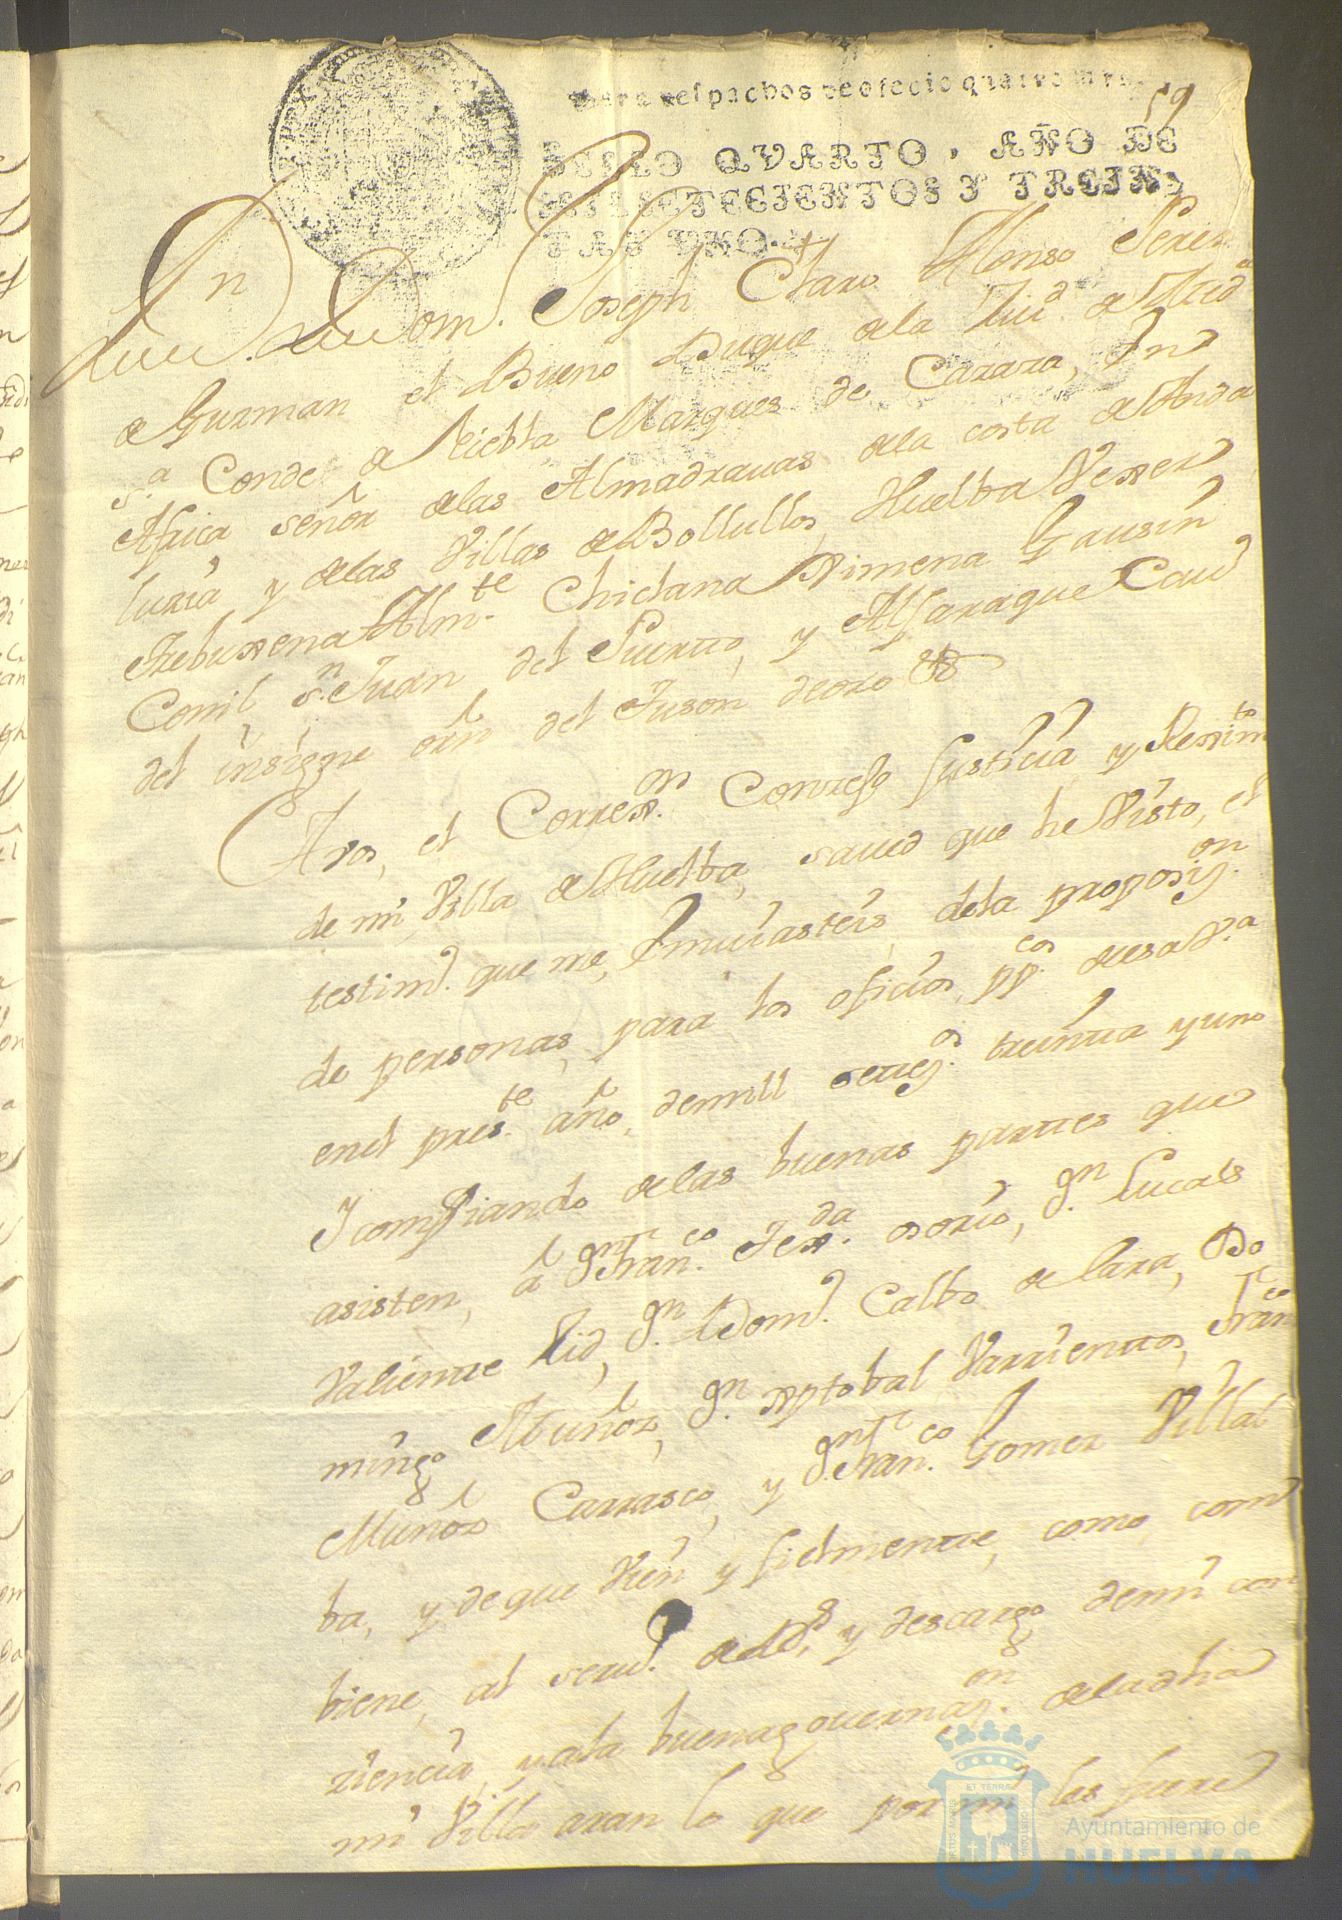 para despachos de oficio quatro mrs
59
SELLO QVARTO, AÑO DE
MIL SETECIENTOS Y TREIN
TA Y VNO.
Dn Dom. Joseph Claro Alonso Perez
de Guzman el Bueno Duque de la Ziud de Medª
sª Conde de Niebla, Marques de Cazaza, en
Africa señor de las Almadrauas de la costa de Anda
luzia y de las Villas de Bollullos, Huelba Vexer
Trebuxena Almte Chiclana Ximena Gausin
Conil, Sn Juan del Puerto, y Aljaraque Cauº
del insigne orñ del Tuson de oro &
A vos, el Correxor Conzejo Justicia y Reximto
de mi Villa de Huelba, saued que he Visto, el
testimº. que me, embiasteis, de la proposizon
de personas, para los oficios ppcos de esa Vª
en el preste año, de mill setezos treinta y uno
Y confiando de las buenas partes que
asisten, a dn Franco Texda osorio, dn Lucas
Valiente Lid, dn Domº Calbo de lara, Do
mingo Muñoz, dn Xptobal Varrientos, Franco
Muñoz Carrasco, y dn Franco Gomez Villal
ba, y de que Vien y fielmente, como, com
biene, al seruº. de Ds, y descargo de mi con
ziencia, y a la buena gouernazon de la dha
mi Villa aran lo que por mi les fuere
Ayuntamiento de
HUELVA